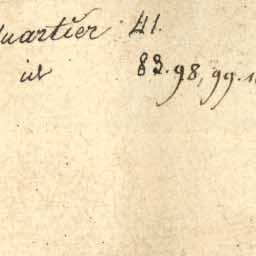 Quartier 41.
id 83. 98, 99. 1